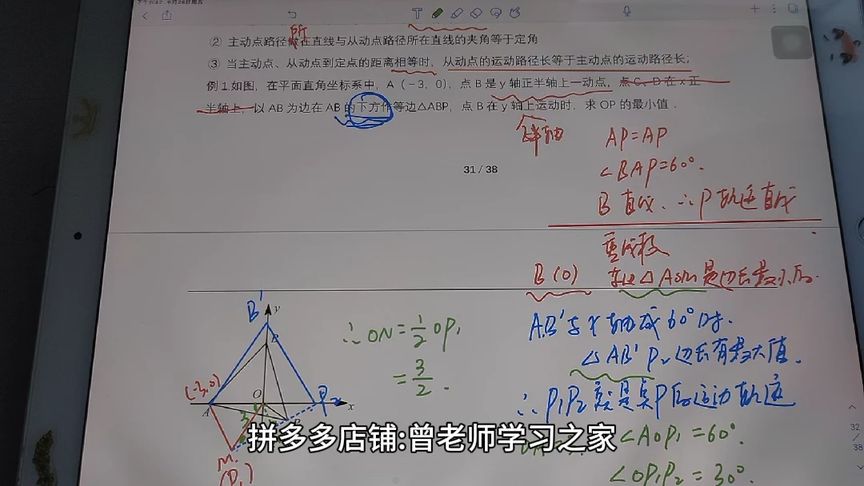 ② 主动点路径所在直线与从动点路径所在直线的夹角等于定角
③ 当主动点、从动点到定点的距离相等时，从动点的运动路径长等于主动点的运动路径长，
例1如图，在平面直角坐标系中，A（-3，0），点B是y轴正半轴上一动点，点C、D在x正
半轴上，以AB为边在AB的下方作等边△ABP，点B在y轴上运动时，求OP的最小值．
AP=AP
∠BAP=60°.
B 直线、∴P轨迹直线
31 / 38
B(O)
B'
y
B
∴ON=1/2 OP₁
=3/2.
AB'与x轴成60°时.
△AB'P₂边长有最大值.
∴P₁P₂就是点P的运动轨迹
(-3,0)
A
O
P₂
x
M
(P₁)
∠AOP₁=60°.
∠OP₁P₂=30°.
拼多多店铺:曾老师学习之家
32
/
38